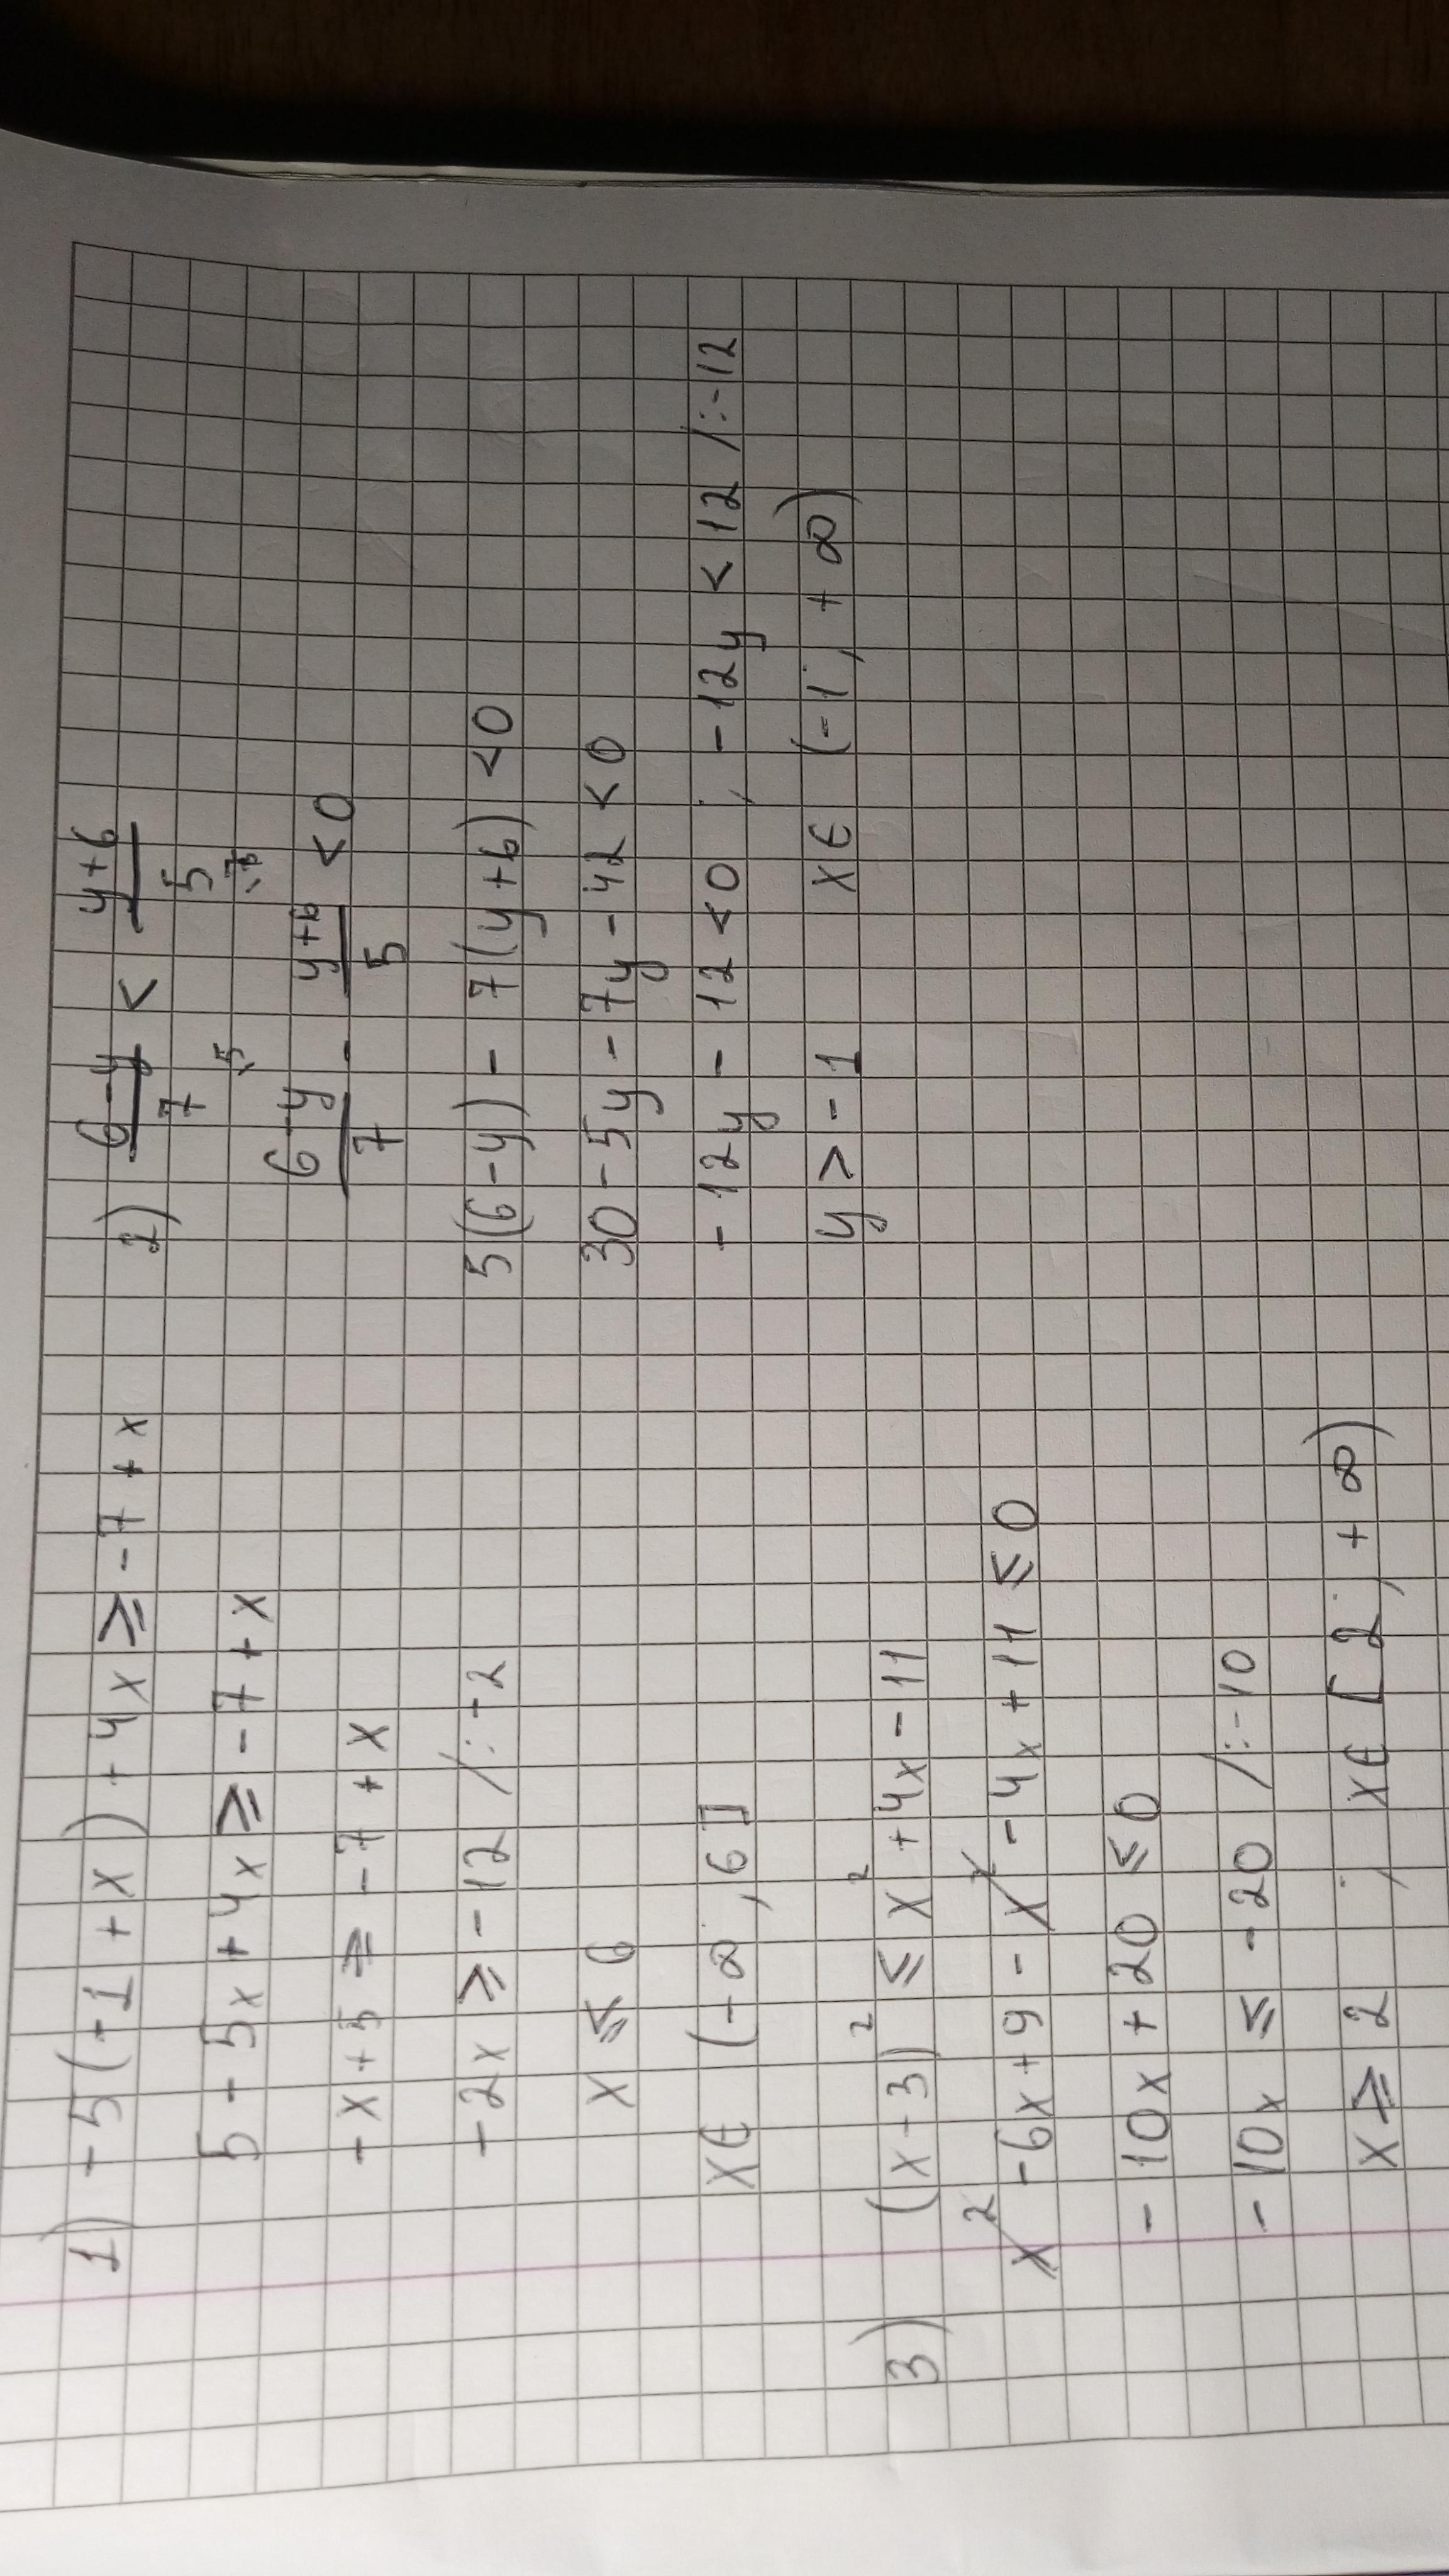 1) -5(-1+x)+4x ≥ -7+x
5 - 5x + 4x ≥ -7 + x
-x+5 ≥ -7 + x
-2x ≥ -12 /:-2
x ≤ 6
x∈ (-∞; 6]
2) (6-y)/7 < (y+6)/5
(6-y)/7 \5 - (y+6)/5 \7 < 0
5(6-y) - 7(y+6) <0
30-5y-7y-42<0
-12y-12<0; -12y<12 /:-12
y>-1 x∈ (-1; +∞)
3) (x-3)² ≤ x²+4x-11
x²-6x+9-x²-4x+11≤0
-10x+20≤0
-10x ≤ -20 /:-10
x≥2; x∈ [2; +∞)